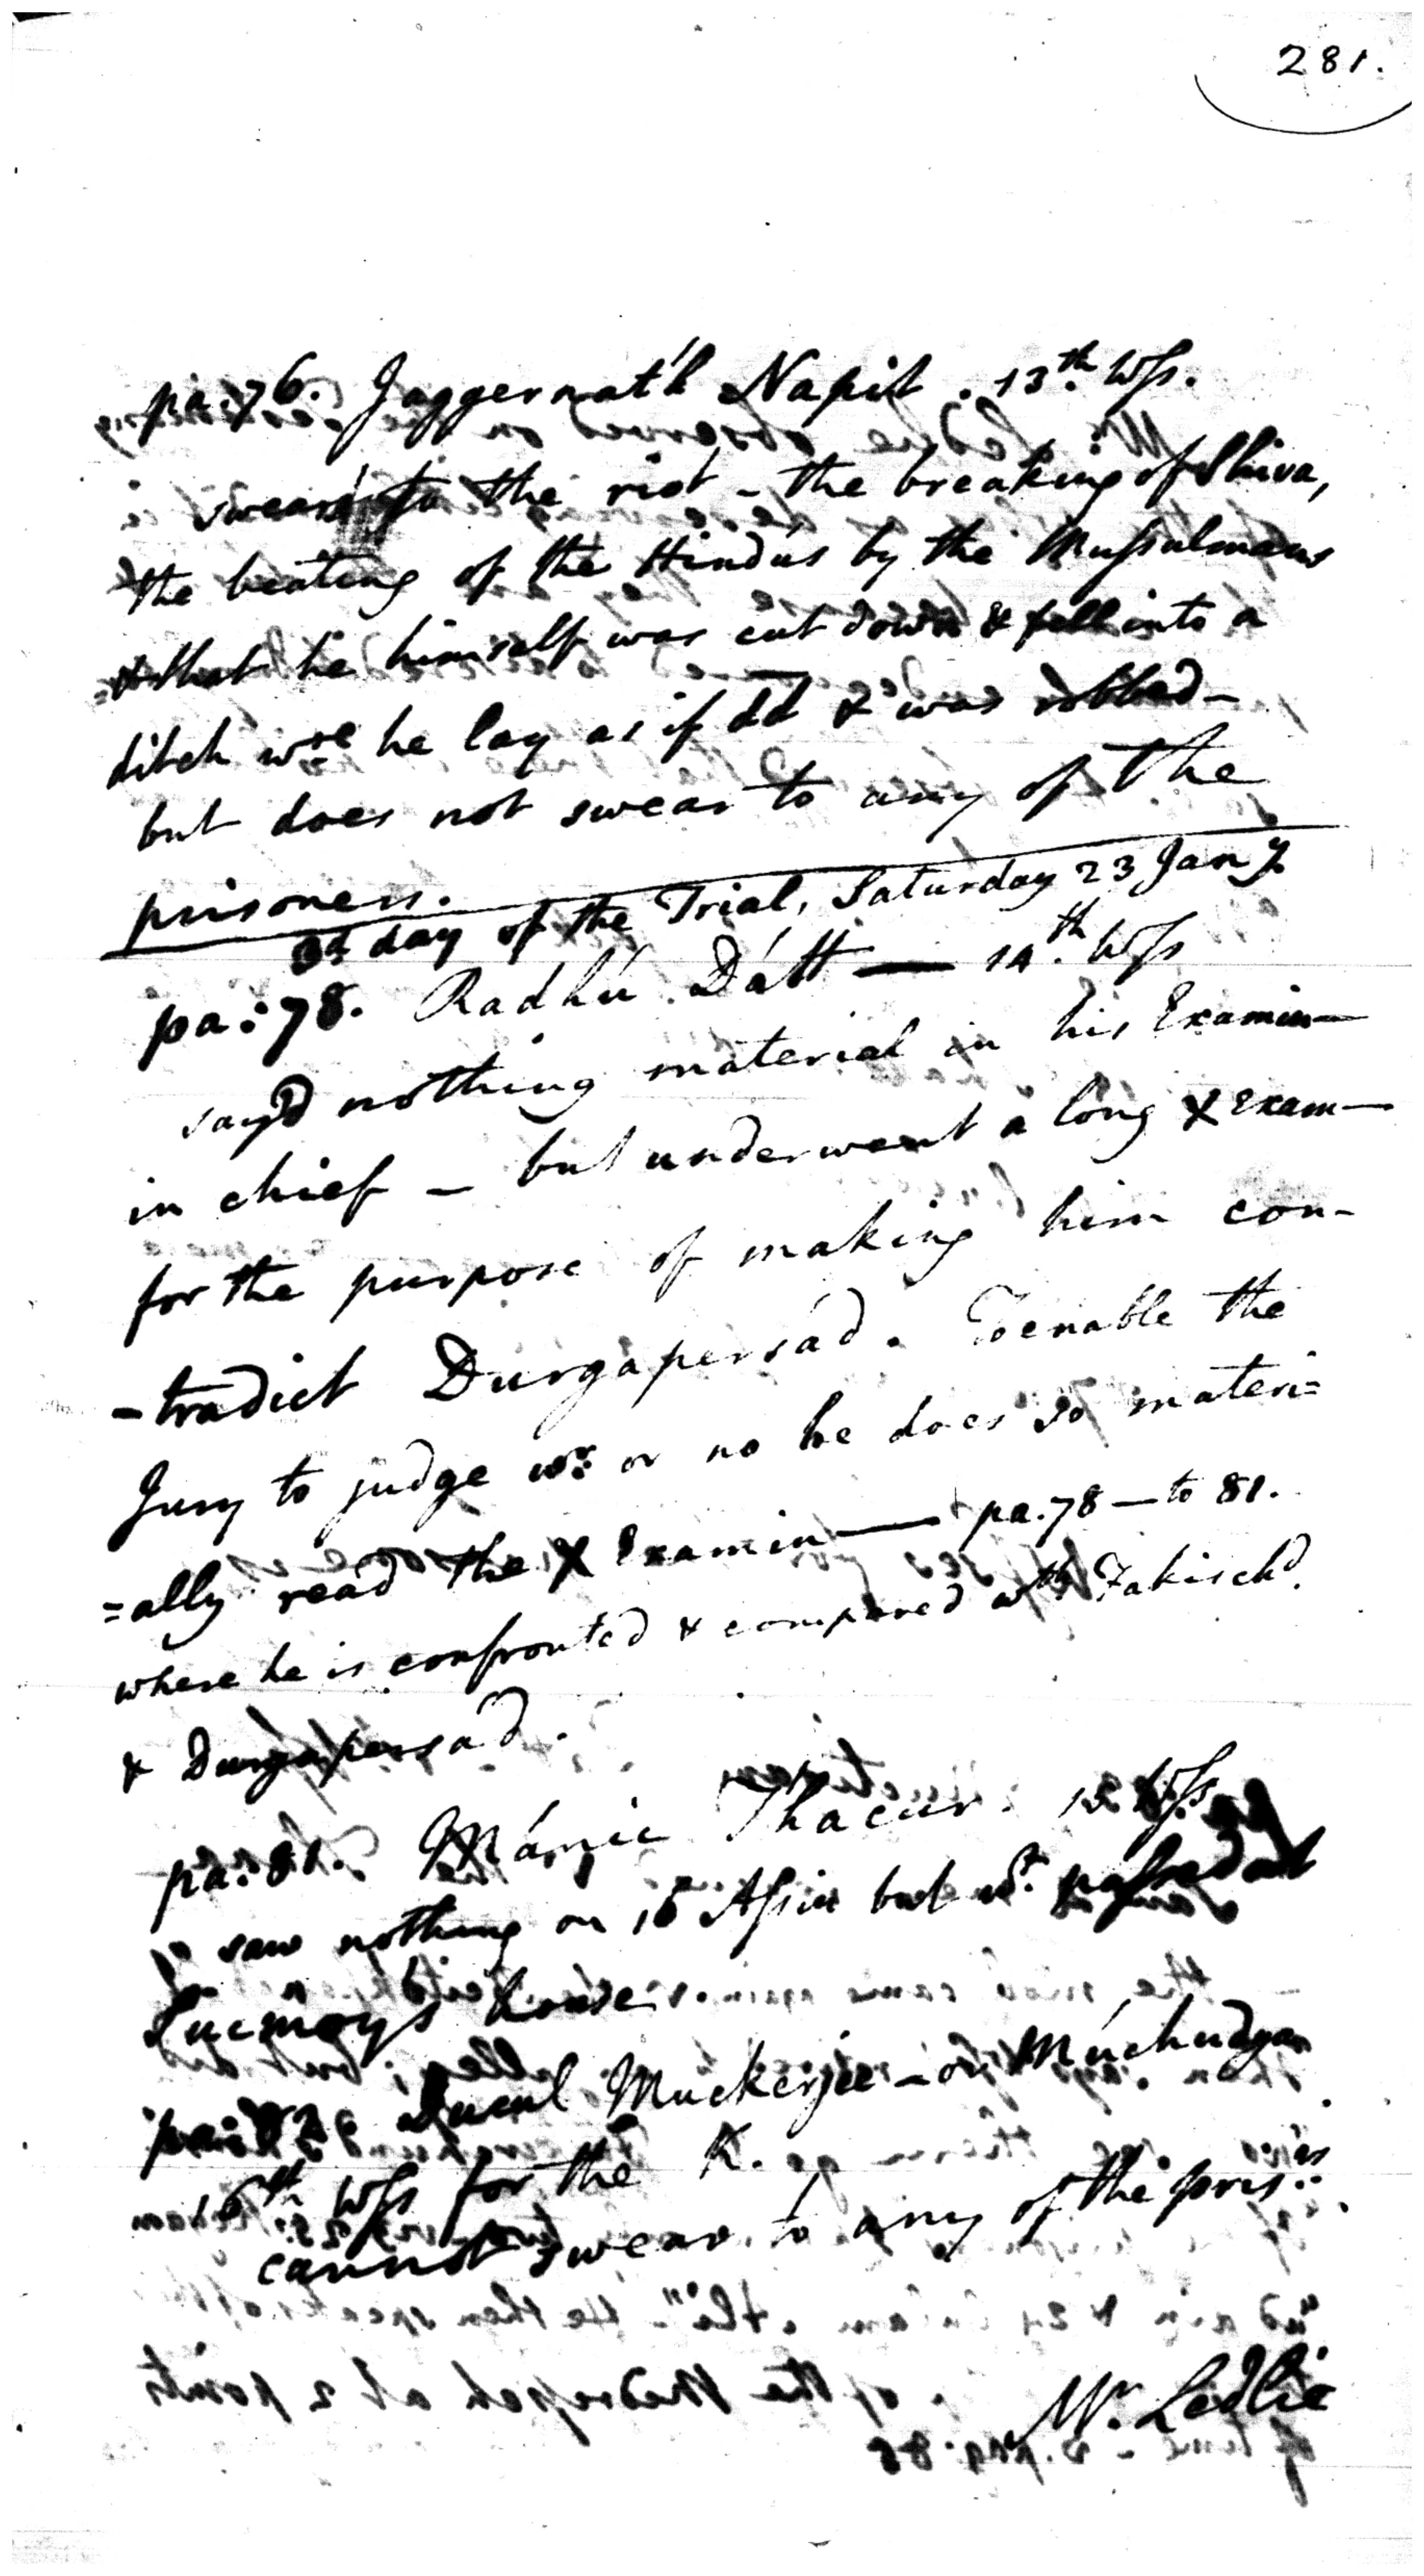 281.
pa. 76. Jaggernat'h Napit. 13th. Wss.
swears to the riot - the breaking of Shiva,
the beating of the Hindus by the Mussulmans
& that he himself was cut down & fell into a
ditch wre he lay as if dd & was robbed -
but does not swear to any of the
prisoners.
3d day of the Trial, Saturday 23 Jany.
pa: 78. Radhú Dátt — 14th. Wss
sayd nothing material in his Examin—
in chief - but underwent a long X Exam—
for the purpose of making him con-
-tradict Durgapersád. To enable the
Jury to judge wr. or no he does so materi=
=ally read the X Examin — pa. 78 — to 81.
where he is confronted & compared wth Fakirchd.
& Durgapersád.
pa: 81. Mánic Thacur. 15 Wss
saw nothing on 16 Assin but wt. passed at
Lucmoy's house.
pa: 83. Muckerjee - or Múchudya
16th Wss for the K.
cannot swear to any of the prisrs.
Mr. Ledlie